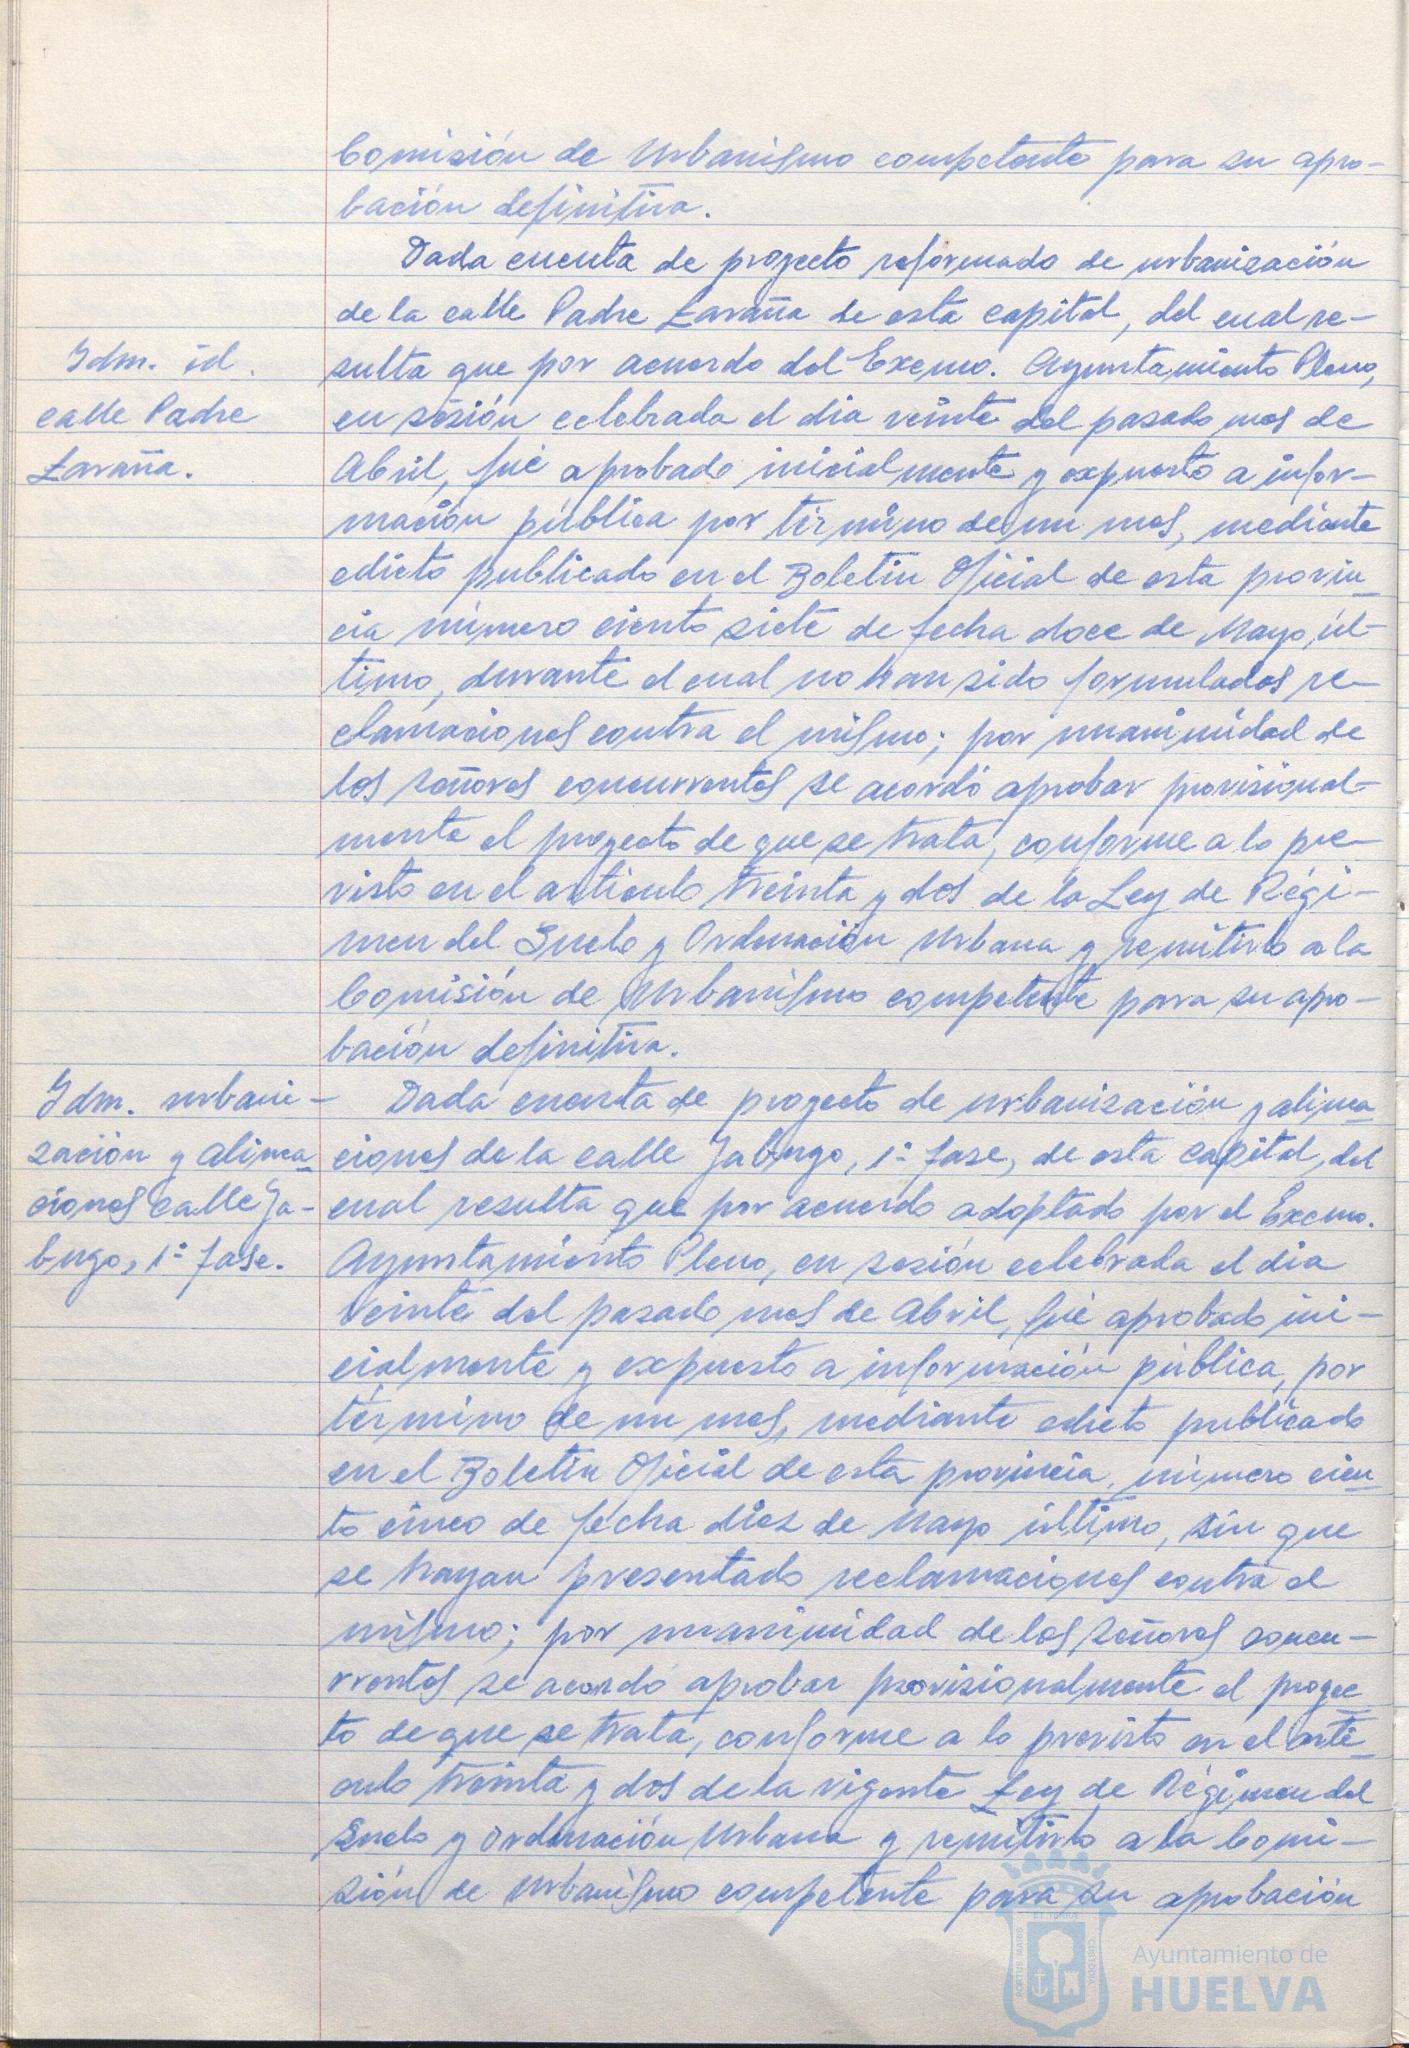 Comisión de Urbanismo competente para su apro-
bación definitiva.
Dada cuenta de proyecto reformado de urbanización
de la calle Padre Laraña de esta capital, del cual re-
Idm. id.
sulta que por acuerdo del Excmo. Ayuntamiento Pleno,
calle Padre
en sesión celebrada el dia veinte del pasado mes de
Laraña.
Abril, fué aprobado inicialmente y expuesto a infor-
mación pública por término de un mes, mediante
edicto publicado en el Boletin Oficial de esta provin-
cia número ciento siete de fecha doce de Mayo úl-
timo, durante el cual no han sido formulados re-
clamaciones contra el mismo; por unanimidad de
los señores concurrentes se acordó aprobar provisional-
mente el proyecto de que se trata, conforme a lo pre-
visto en el artículo treinta y dos de la Ley de Régi-
men del Suelo y Ordenación Urbana y remitirlo a la
Comisión de Urbanismo competente para su apro-
bación definitiva.
Idm. urbani-
Dada cuenta de proyecto de urbanización y alinea-
zación y alinea-
ciones de la calle Jabugo, 1ª fase, de esta capital, del
ciones calle Ja-
cual resulta que por acuerdo adoptado por el Excmo.
bugo, 1ª fase.
Ayuntamiento Pleno, en sesión celebrada el dia
veinte del pasado mes de Abril, fué aprobado ini-
cialmente y expuesto a información pública, por
término de un mes, mediante edicto publicado
en el Boletin Oficial de esta provincia, número cien-
to cinco de fecha diez de Mayo último, sin que
se hayan presentado reclamaciones contra el
mismo; por unanimidad de los señores concu-
rrentes se acordó aprobar provisionalmente el proyec-
to de que se trata, conforme a lo previsto en el artí-
culo treinta y dos de la vigente Ley de Régimen del
Suelo y Ordenación Urbana y remitirlo a la Comi-
sión de Urbanismo competente para su aprobación
Ayuntamiento de
HUELVA